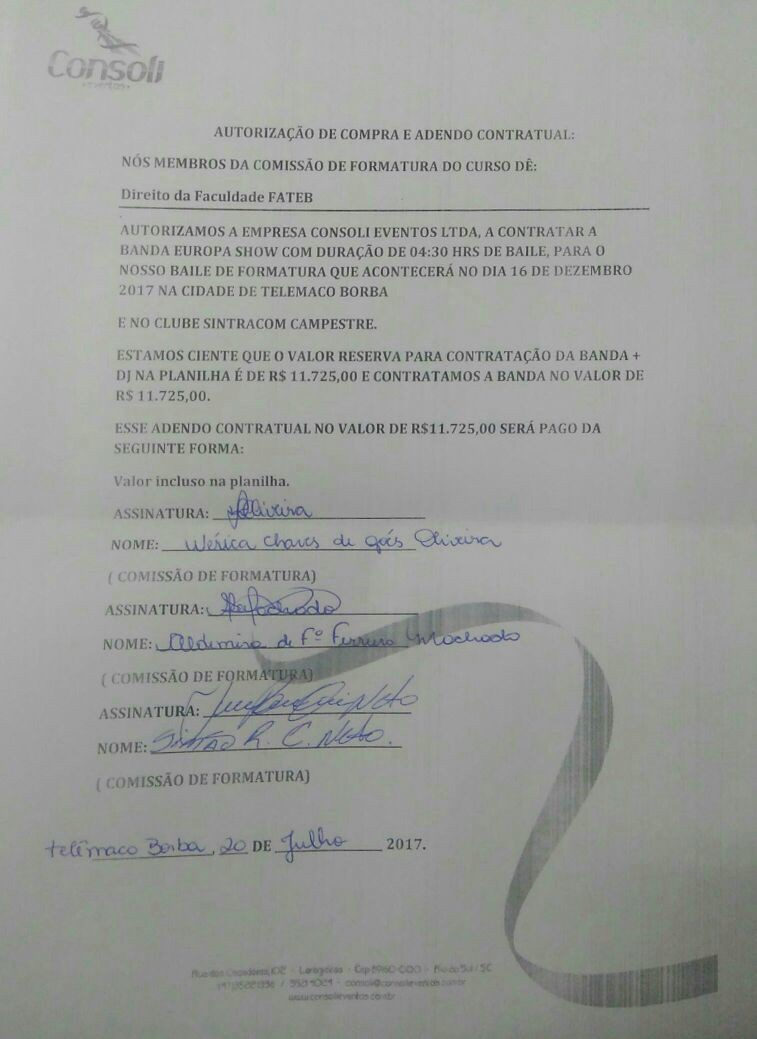 Consoli
eventos
AUTORIZAÇÃO DE COMPRA E ADENDO CONTRATUAL:
NÓS MEMBROS DA COMISSÃO DE FORMATURA DO CURSO DÊ:
Direito da Faculdade FATEB
AUTORIZAMOS A EMPRESA CONSOLI EVENTOS LTDA, A CONTRATAR A
BANDA EUROPA SHOW COM DURAÇÃO DE 04:30 HRS DE BAILE, PARA O
NOSSO BAILE DE FORMATURA QUE ACONTECERÁ NO DIA 16 DE DEZEMBRO
2017 NA CIDADE DE TELEMACO BORBA
E NO CLUBE SINTRACOM CAMPESTRE.
ESTAMOS CIENTE QUE O VALOR RESERVA PARA CONTRATAÇÃO DA BANDA +
DJ NA PLANILHA É DE R$ 11.725,00 E CONTRATAMOS A BANDA NO VALOR DE
R$ 11.725,00.
ESSE ADENDO CONTRATUAL NO VALOR DE R$11.725,00 SERÁ PAGO DA
SEGUINTE FORMA:
Valor incluso na planilha.
ASSINATURA: Oliveira
NOME: Wérica Chaves de Góes Oliveira
( COMISSÃO DE FORMATURA)
ASSINATURA: Machado
NOME: Aldemira de Fº Ferreira Machado
( COMISSÃO DE FORMATURA)
ASSINATURA: Neto
NOME: Simão R. C. Neto.
( COMISSÃO DE FORMATURA)
Telêmaco Borba, 20 DE Julho 2017.
Rua dos Caçadores, - Laranjeiras - Cep 89160-000 - Rio do Sul / SC
consoli@consolieventos.com.br
www.consolieventos.com.br